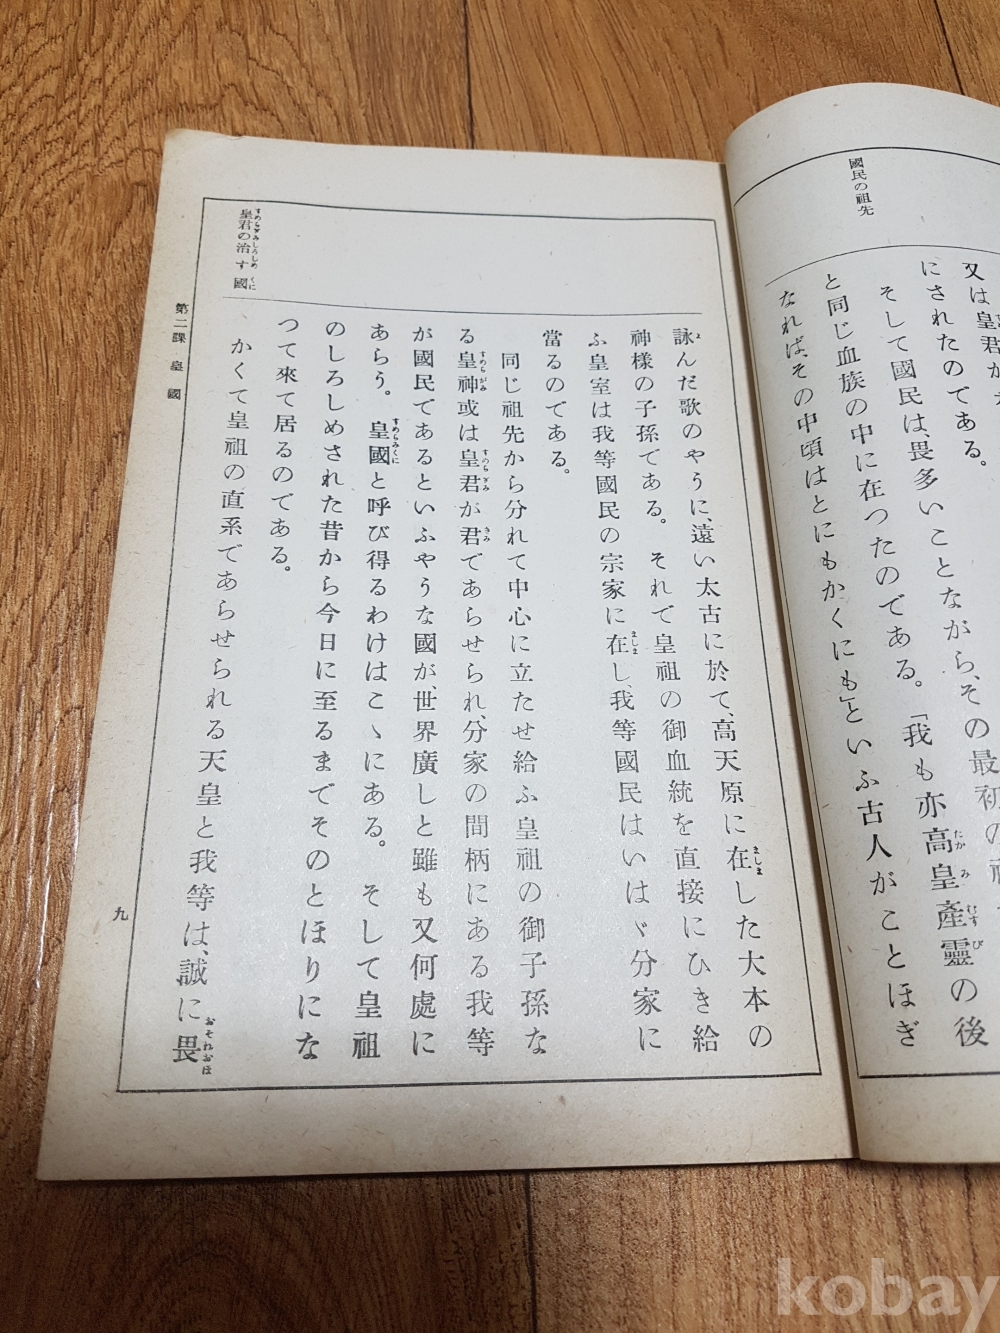 國民の祖先
又は皇君が
にされたのである。
そして國民は、畏多いことながら、その最初の
と同じ血族の中に在つたのである。「我も亦高皇産靈の後
なれば、その中頃はとにもかくにも」といふ古人がことほぎ
詠んだ歌のやうに、遠い太古に於て、高天原に在した大本の
神樣の子孫である。それで皇祖の御血統を直接にひき給
ふ皇室は我等國民の宗家に在し、我等國民はいはゞ分家に
當るのである。
同じ祖先から分れて中心に立たせ給ふ皇祖の御子孫な
る皇神或は皇君が君であらせられ、分家の間柄にある我等
が國民であるといふやうな國が、世界廣しと雖も又何處に
あらう。皇國と呼び得るわけはこゝにある。そして皇祖
のしろしめされた昔から今日に至るまでそのとほりにな
つて來て居るのである。
かくて皇祖の直系であらせられる天皇と我等は、誠に畏
皇君の治す國
第二課 皇國
九
kobay